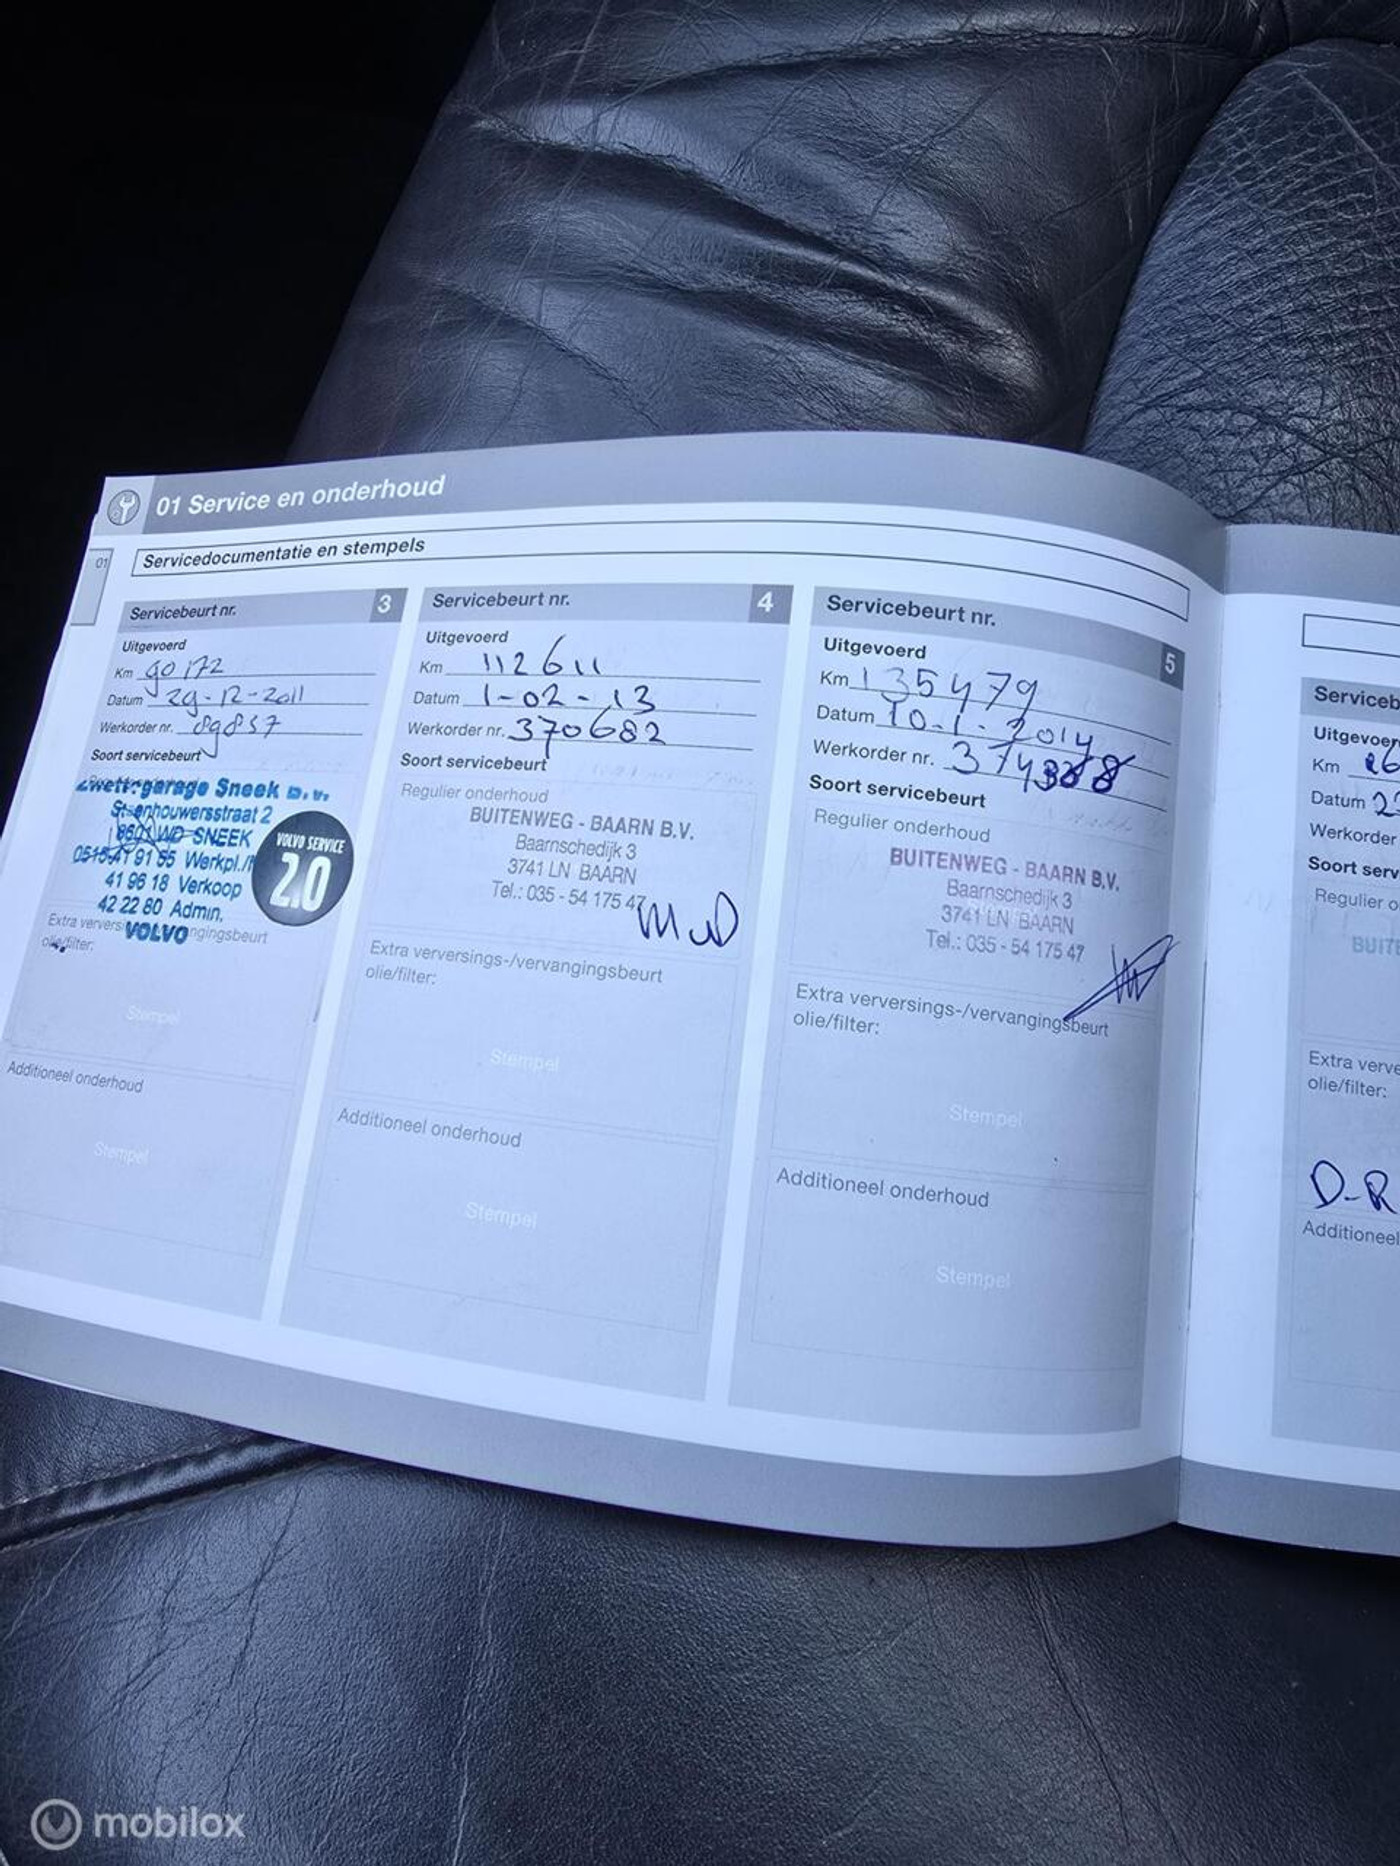 01 Service en onderhoud
01
Servicedocumentatie en stempels
Servicebeurt nr. 3
Uitgevoerd
Km 90172
Datum 29-12-2011
Werkorder nr. 89857
Soort servicebeurt
Zwettegarage Sneek B.V.
Steenhouwersstraat 2
8601 WD SNEEK
0515-41 91 55 Werkpl./
41 96 18 Verkoop
42 22 80 Admin.
VOLVO
VOLVO SERVICE
2.0
olie/filter:
Stempel
Additioneel onderhoud
Stempel
Servicebeurt nr. 4
Uitgevoerd
Km 112611
Datum 1-02-13
Werkorder nr. 370682
Soort servicebeurt
Regulier onderhoud
BUITENWEG - BAARN B.V.
Baarnschedijk 3
3741 LN BAARN
Tel.: 035 - 54 175 47
Extra verversings-/vervangingsbeurt
olie/filter:
Stempel
Additioneel onderhoud
Stempel
Servicebeurt nr. 5
Uitgevoerd
Km 135479
Datum 10-1-2014
Werkorder nr.
Soort servicebeurt
Regulier onderhoud
BUITENWEG - BAARN B.V.
Baarnschedijk 3
3741 LN BAARN
Tel.: 035 - 54 175 47
Extra verversings-/vervangingsbeurt
olie/filter:
Stempel
Additioneel onderhoud
Stempel
Serviceb
Uitgevoer
Km
Datum 2
Werkorder
Soort serv
Regulier o
BUITE
Extra verve
olie/filter:
D-R
Additioneel
mobilox